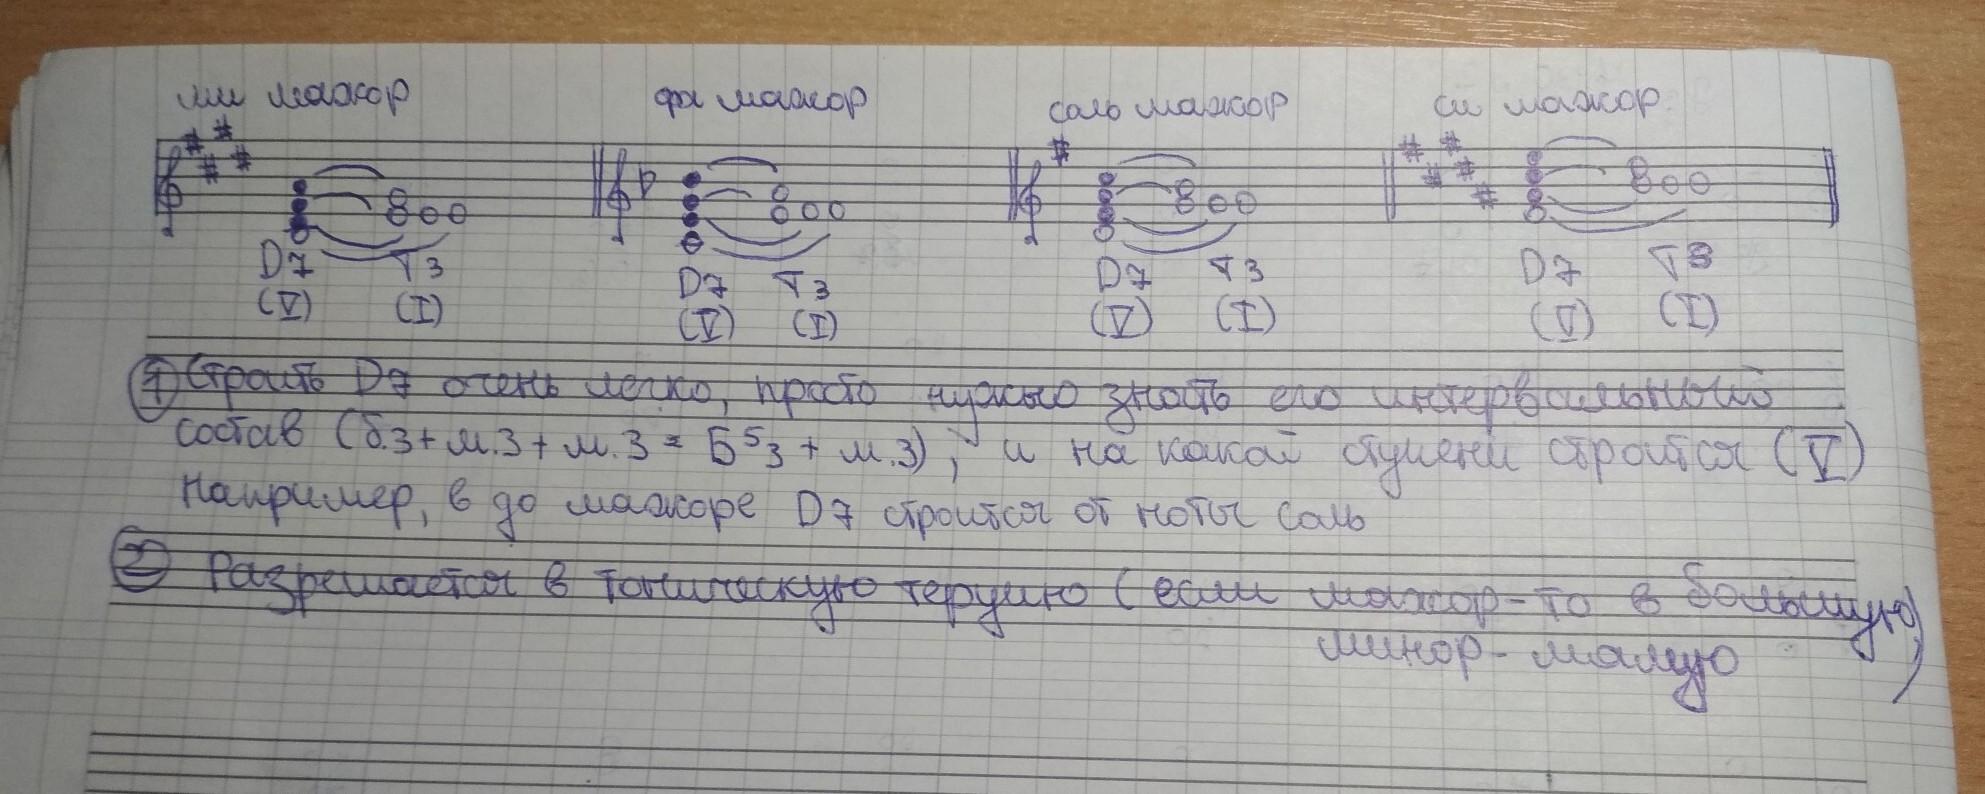 ми мажор фа мажор соль мажор си мажор
D7 T3 D7 T3 D7 T3 D7 T3
(V) (I) (V) (I) (V) (I) (V) (I)
1 Строить D7 очень легко, просто нужно знать его интервальный
состав (б.3+м.3+м.3=Б53+м.3), и на какой ступени строится (V)
Например, в до мажоре D7 строится от ноты соль
2 Разрешается в тоническую терцию (если мажор-то в большую,
минор-малую)